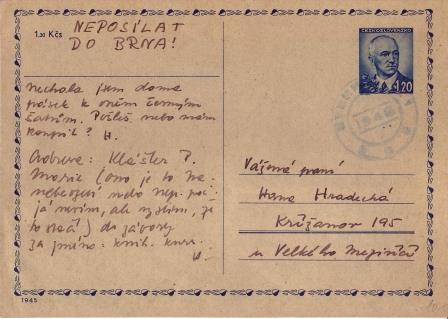 1.20 Kčs
NEPOSÍLAT
DO BRNA!
ČESKOSLOVENSKO
1.20
Nechala jsem doma
pásek k oněm černým
šatům. Pošleš nebo mám
koupit? H.
Adresa: Klášter P.
Marie (ono je to na
nebevzetí nebo nep. poč.
já nevím, ale myslím, že
to stačí) do závorky
za jméno: knih. kurs.
H.
Vážená paní
Hana Hradecká
Křižanov 195
u Velkého Meziříčí
1945